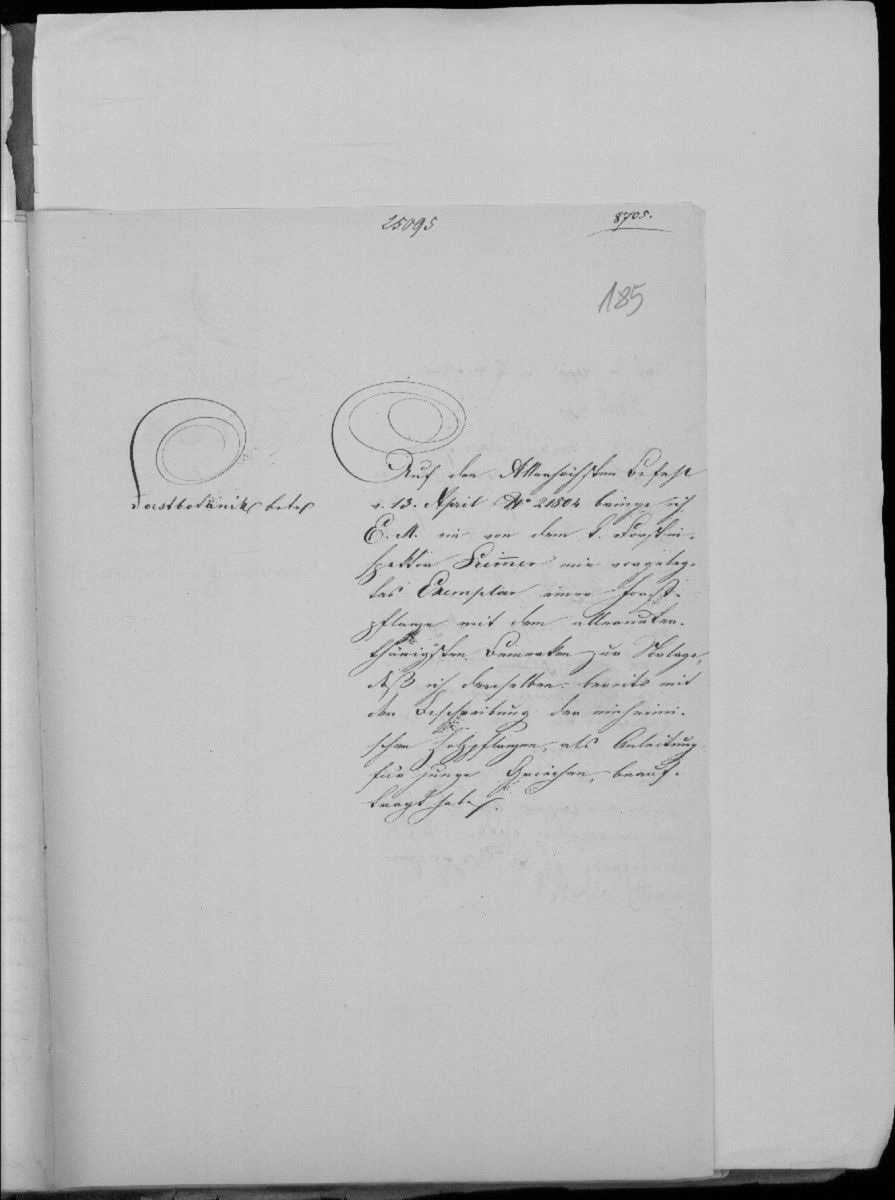 25095
8705.
185
Forstbotanik betr
Auf den Allerhöchsten Befehl
v. 13. April No 21804 bringe ich
E. M. ein von dem k. Forstin-
spektor mir vorgeleg-
tes Exemplar einer Forst-
pflanze mit dem allerunter-
thänigsten Bemerken zur Vorlage,
daß ich denselben bereits mit
der Beschreibung der einheimi-
schen Holzpflanzen, als Anleitung
für junge Griechen, beauf-
tragt habe.